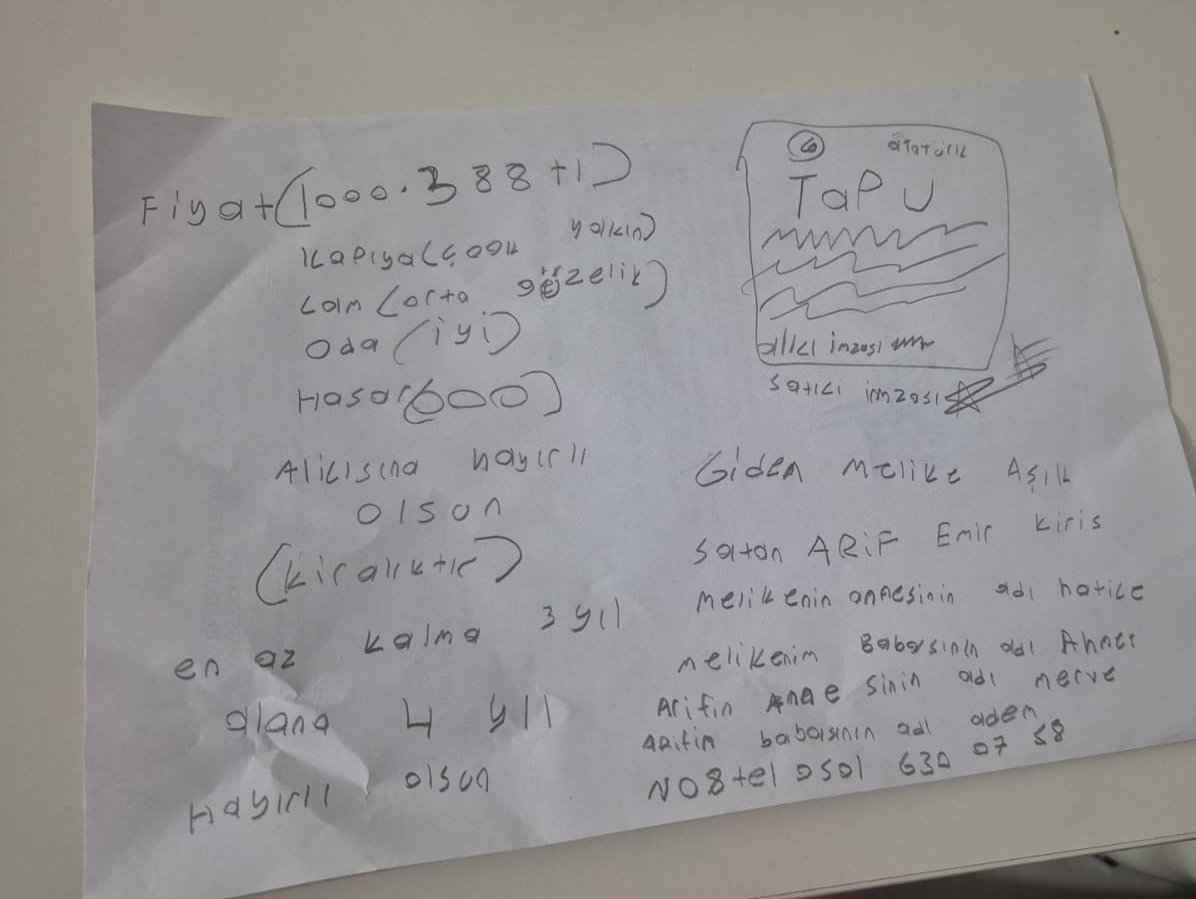 Fiyat (1000.388+1)
Kapıya (çook yakın)
Cam (orta güzelik)
Oda (iyi)
Hasar (600)
Alicısına hayırlı
olson
(kiralıktır)
en az kalma 3 yıl
alana 4 yıl
Hayırlı olsun
ATATÜRK
TaPU
alıcı imzası
satıcı imzası
Giden Melike Aşık
Satan ARiF Emir Kiris
Melikenin annesinin adı hatice
melikenin Babasının adı Ahmet
Arifin Annesinin adı merve
ARifin babasının adı adem
NO8 tel 0501 630 07 58